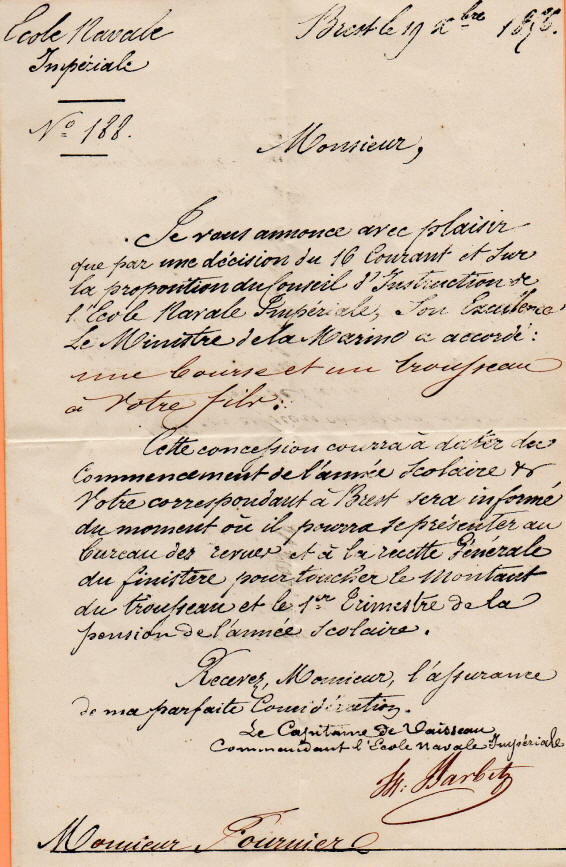 Ecole Navale
Impériale
Brest le 19 Xbre 1856.
N° 188.
Monsieur,
Je vous annonce avec plaisir
que par une décision du 16 Courant et sur
la proposition du Conseil d'Instruction de
l'Ecole Navale Impériale, Son Excellence
Le Ministre de la Marine a accordé :
une bourse et un trousseau
à votre fils.
Cette concession courra à dater du
Commencement de l'année Scolaire &
Votre correspondant à Brest sera informé
du moment où il pourra se présenter au
bureau des revues et à la recette Générale
du finistère pour toucher le montant
du trousseau et le 1er Trimestre de la
pension de l'année Scolaire.
Recevez, Monsieur, l'assurance
de ma parfaite Considération.
Le Capitaine de Vaisseau
Commandant l'Ecole navale Impériale
Monsieur Fournier